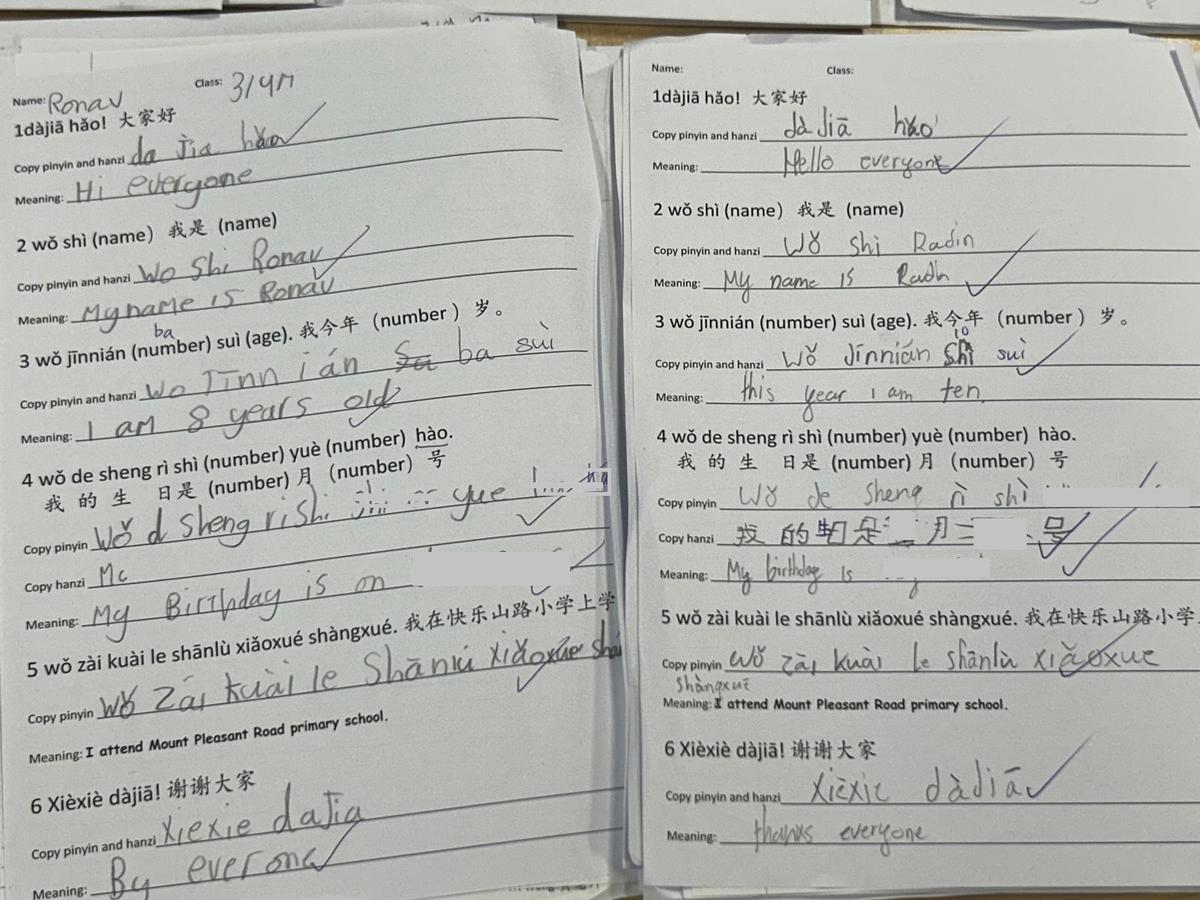 Name: Ronav Class: 3/4M
1dàjiā hǎo! 大家好
Copy pinyin and hanzi da Jia hǎo
Meaning: Hi everyone
2 wǒ shì (name) 我是 (name)
Copy pinyin and hanzi Wo Shi Ronav
Meaning: My name is Ronav
ba
3 wǒ jīnnián (number) suì (age). 我今年 (number) 岁。
Copy pinyin and hanzi Wo Jīnn ián ba suì
Meaning: I am 8 years old
4 wǒ de sheng rì shì (number) yuè (number) hào.
我 的 生 日是 (number) 月 (number) 号
Copy pinyin Wǒ d sheng rishi yue
Copy hanzi Mc
Meaning: My Birthday is on
5 wǒ zài kuài le shānlù xiǎoxué shàngxué. 我在快乐山路小学上学
Copy pinyin Wǒ Zái kuài le Shānlú xiǎoxue sha
Meaning: I attend Mount Pleasant Road primary school.
6 Xièxiè dàjiā! 谢谢大家
Copy pinyin and hanzi Xiexie daJia
Meaning: By everone
Name: Class:
1dàjiā hǎo! 大家好
Copy pinyin and hanzi dà Jiā hǎo
Meaning: Hello everyone
2 wǒ shì (name) 我是 (name)
Copy pinyin and hanzi Wǒ shì Radin
Meaning: My name is Radin
3 wǒ jīnnián (number) suì (age). 我今年 (number) 岁。
10
Copy pinyin and hanzi Wǒ Jīnnián shí suì
Meaning: this year I am ten.
4 wǒ de sheng rì shì (number) yuè (number) hào.
我 的 生 日是 (number) 月 (number) 号
Copy pinyin Wǒ de sheng rì shì
Copy hanzi 我 的 生日是 二 月 三 号
Meaning: My birthday is
5 wǒ zài kuài le shānlù xiǎoxué shàngxué. 我在快乐山路小学
Copy pinyin Wǒ zài kuài le shānlù xiǎoxue
shàngxuē
Meaning: I attend Mount Pleasant Road primary school.
6 Xièxiè dàjiā! 谢谢大家
Copy pinyin and hanzi Xièxie dàJiā
Meaning: thanks everyone